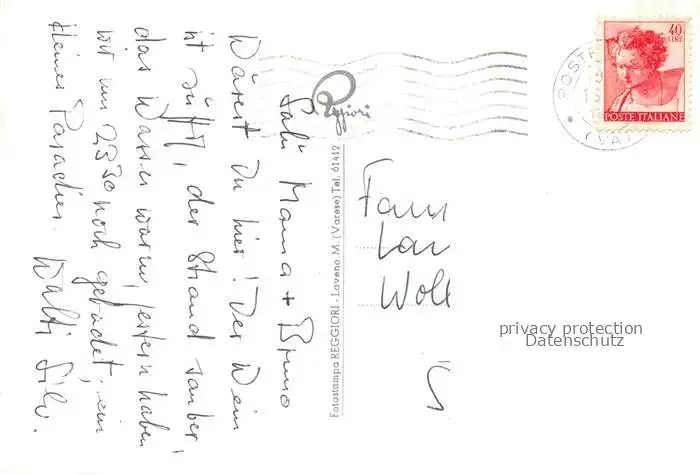 Sali Mama + Bruno
Wärest Du hier! Der Wein
ist süffig, der Strand sauber,
das Wasser warm, gestern haben
wir um 23³⁰ noch gebadet; ein
kleines Paradies. Walti Silv.
Reggiori
Fotostampa REGGIORI - Laveno M. (Varese) Tel. 61412
40
LIRE
POSTE ITALIANE
POSTE
(VA)
Fam
Lau
Woll
privacy protection
Datenschutz